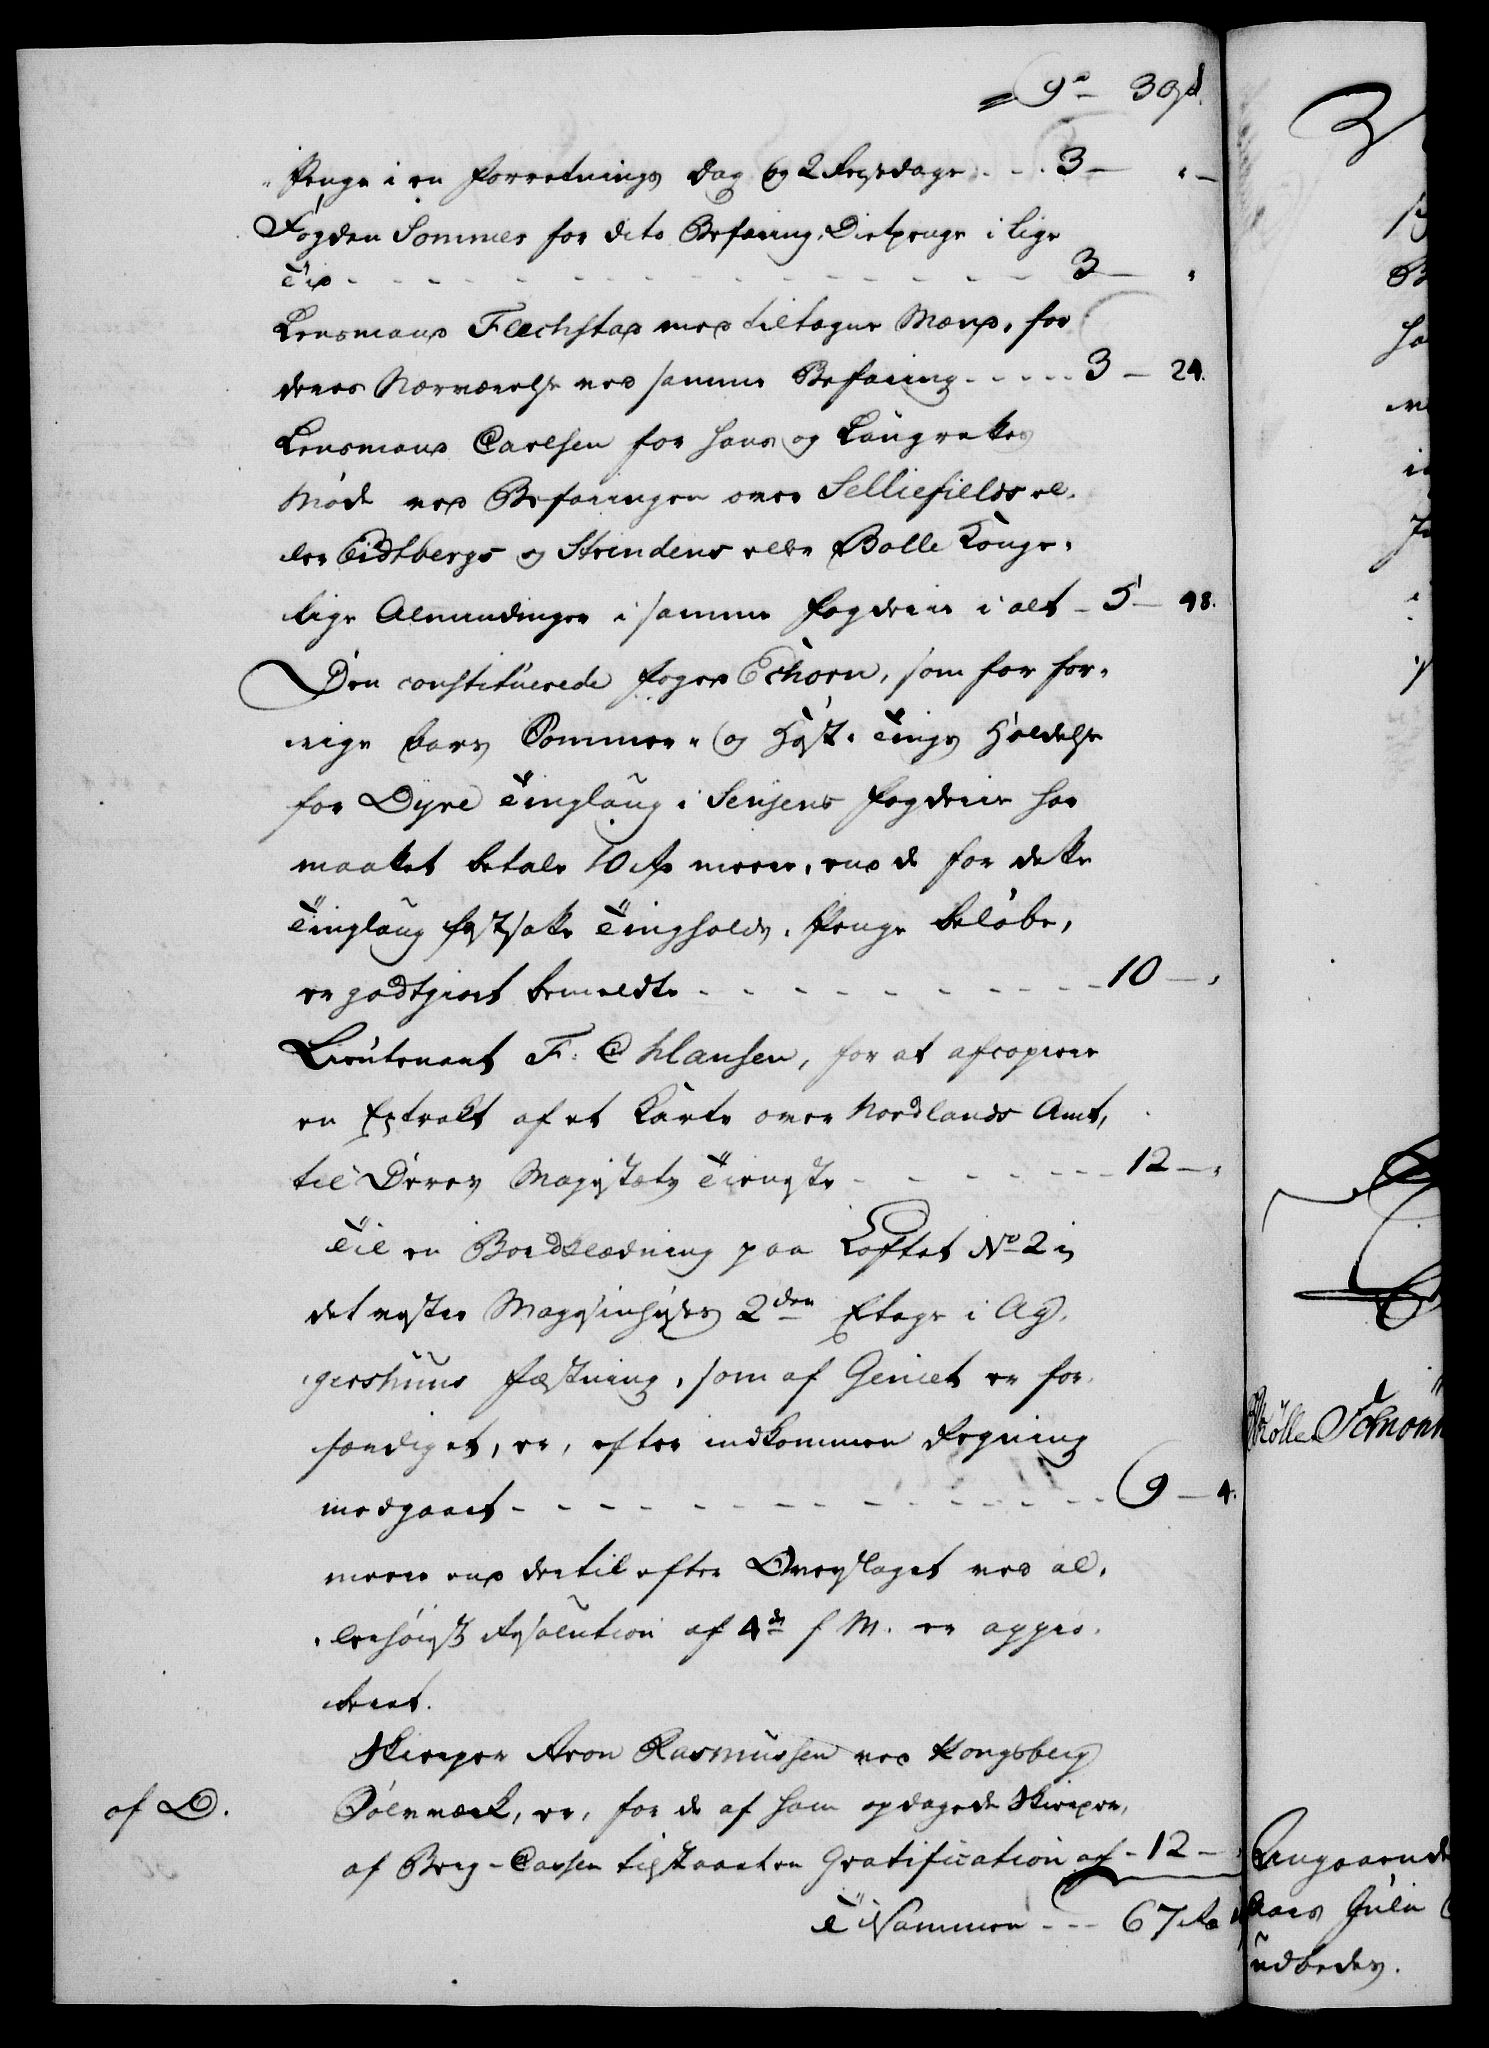 9 - 30 ß.
Penge i en Forretnings Dag og 2 Reisedage - - . 3 - " -
Fogden Sommer for dito Befaring, Dietpenge i lige
Tid - - - - - - - 3 - "
Lensmand Flechstad med tiltagne Mænd, for
deres Nærværelse ved samme Befaring - - - - - 3 - 24.
Lensmand Carlsen for hans og Laugrettes
Møde ved Befaringen over Selliefields el-
ler Eidtbergs og Strindens eller Bolle Konge-
lige Almindinger i samme Fogderie i alt - 5 - 48.
Den constituerede Foged Echorn, som for for-
rige Aars Sommer- og Høst-Tings Holdelse
for Dyrø Tinglaug i Senjens Fogderie har
maattet betale 10 Rd meere, end de for dette
Tinglaug fastsatte Tingholds-Penge beløbe,
er godtgiort bemeldte - - - - - - - 10 - "
Lieutenant F: C Hansen, for at afcopiere
en Extrakt af et Karte over Nordlands Amt,
til Deres Majestæts Tieneste - - - - - - 12 - "
Til en Bordklædning paa Loftet No 2 i
det vestre Magasinhuses 2den Etage i Ag-
gershuus Fæstning, som af Geniet er for-
færdiget, er, efter indkommen Regning
medgaaet - - - - - - - - - 9 - 4.
meere end dertil efter Overslaget ved al-
lerhøist Resolution af 4de f. M. er appro-
beret.
Skierper Aron Rasmussen ved Kongsberg
af D. Sølvværk, er, for de af ham opdagede Skierper,
af Berg-Cassen tilstaaet en Gratification af - 12 -
Tilsammen - - - 67 Rd
Mølle Schønn
Angaaende
Aars Julii
udbedes.